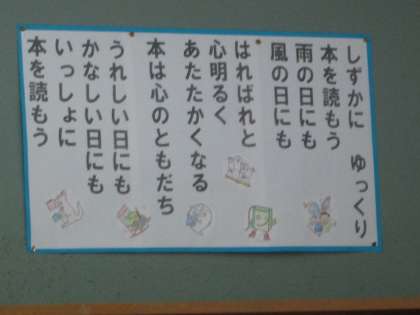 しずかに　ゆっくり
本を読もう
雨の日にも
風の日にも
はればれと
心明るく
あたたかくなる
本は心のともだち
うれしい日にも
かなしい日にも
いっしょに
本を読もう